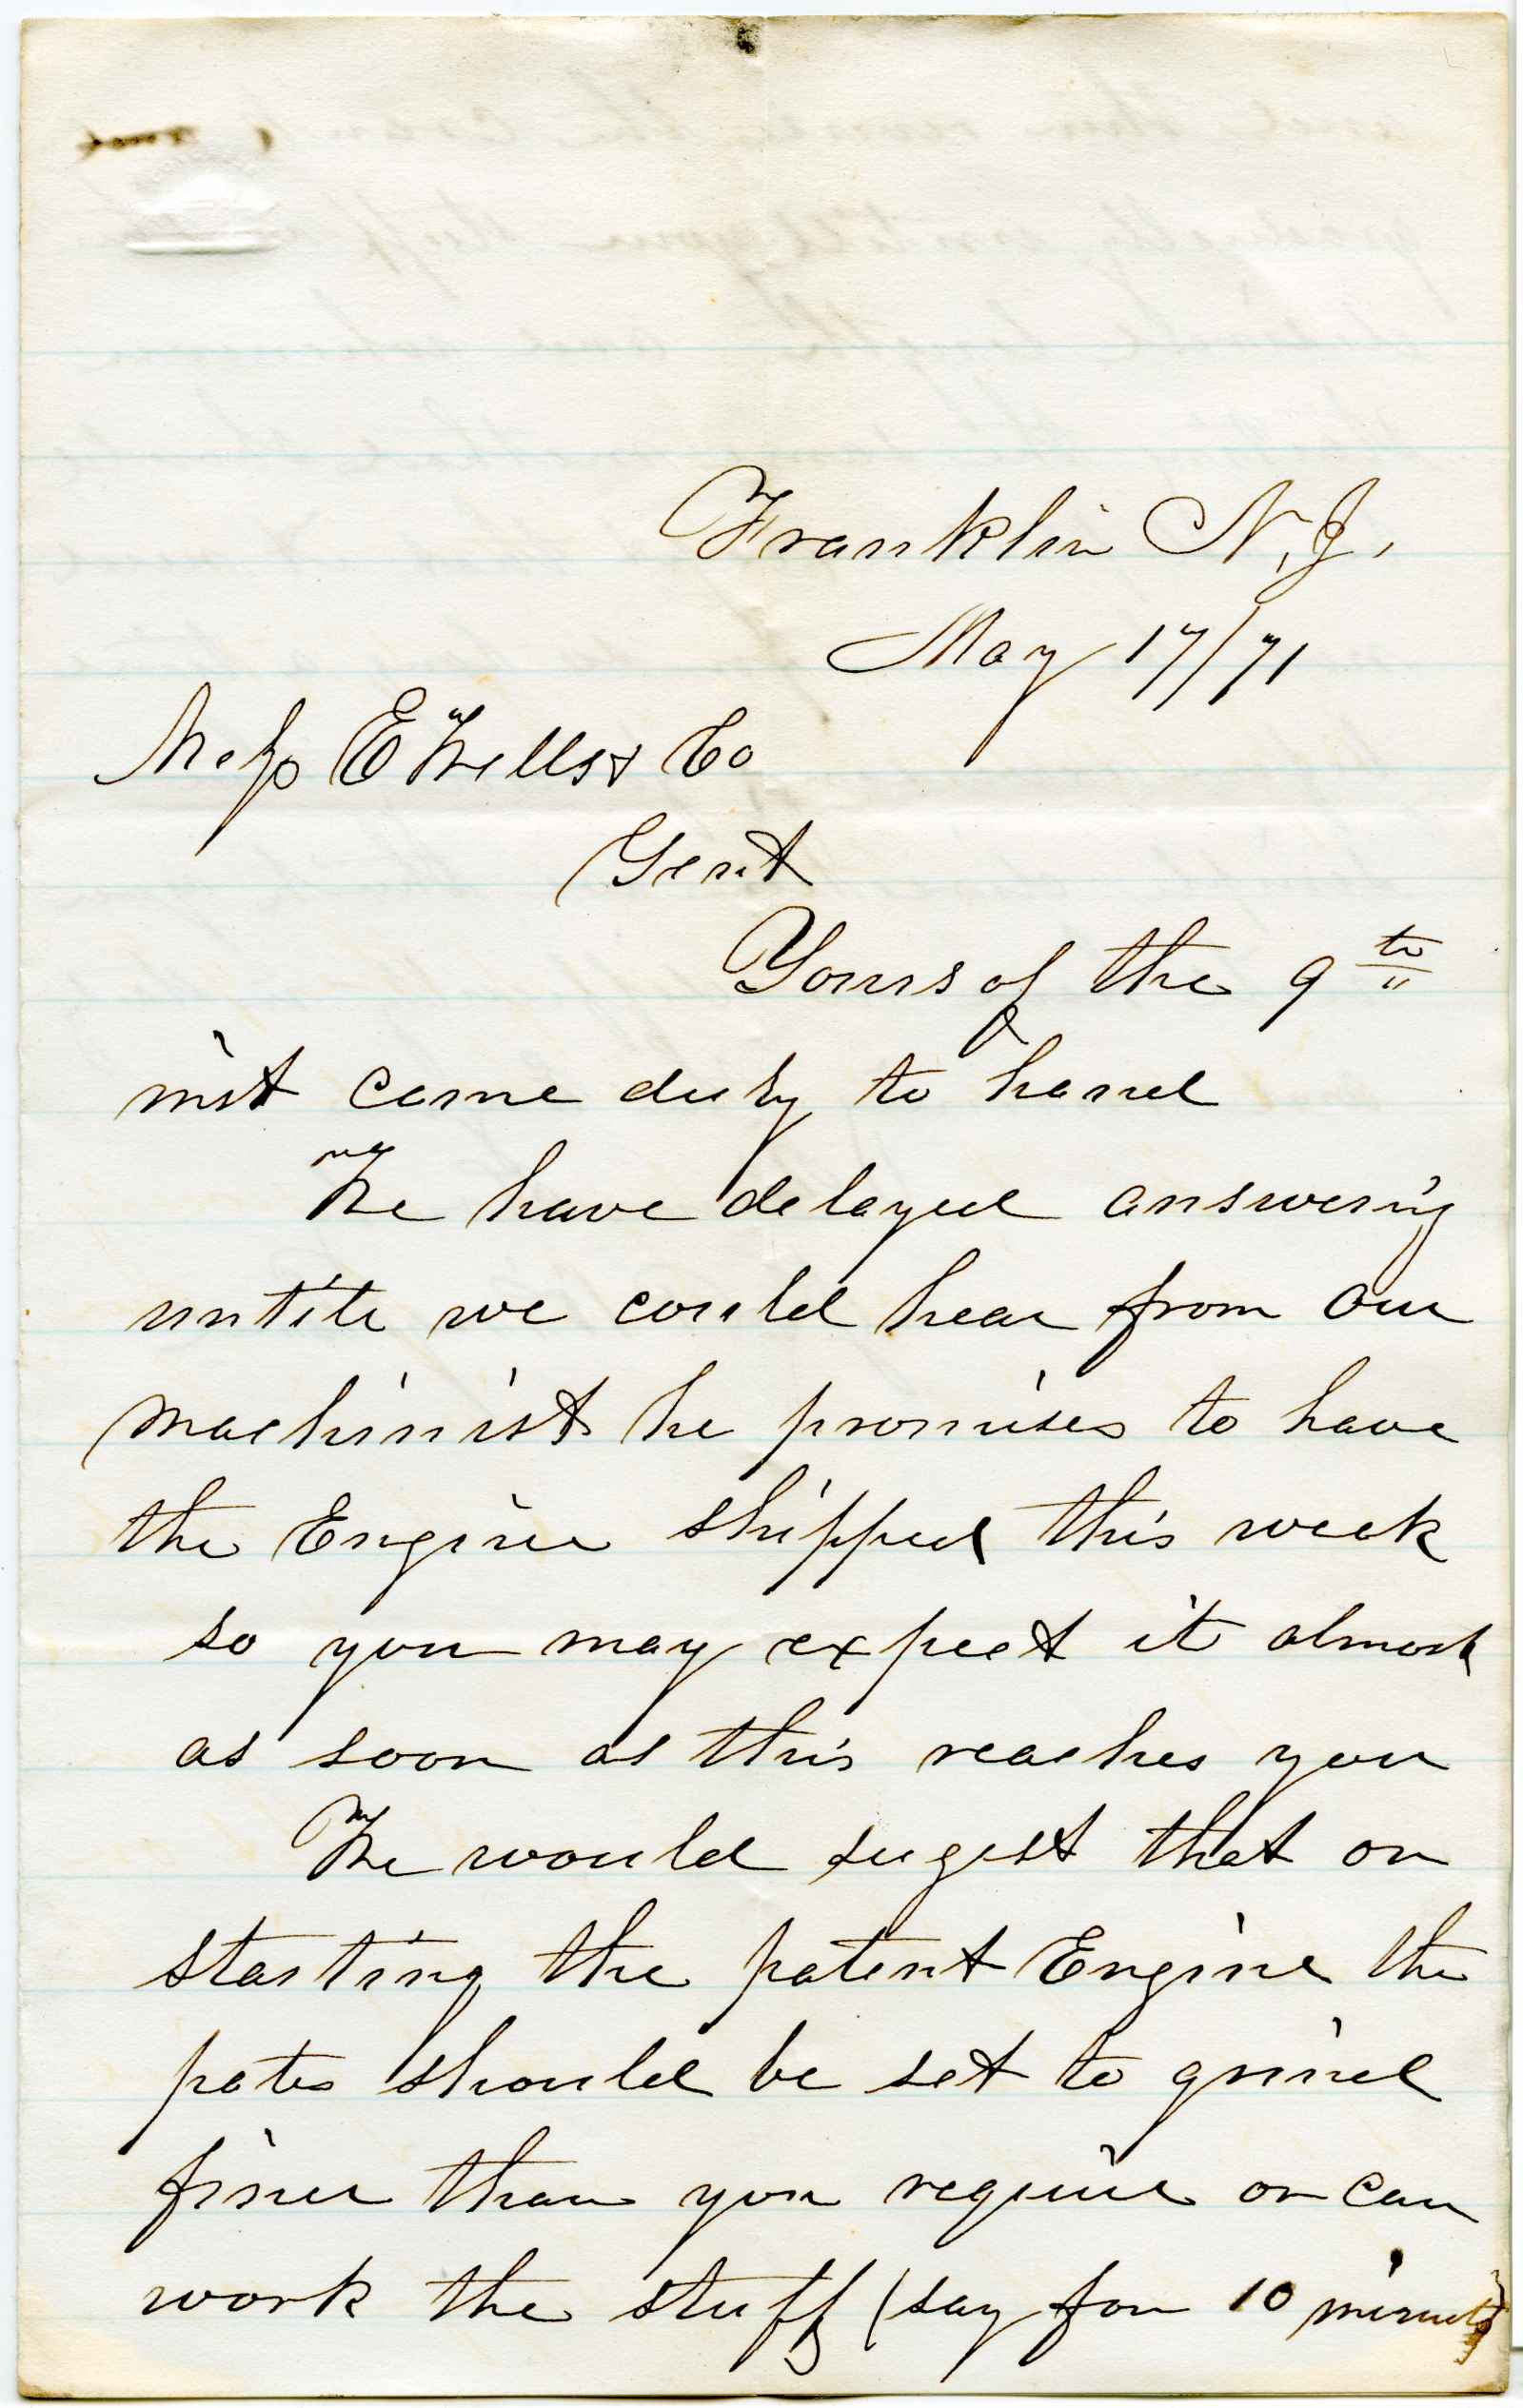 Franklin N.J.
May 17/71
Messrs E Wells & Co
Gent
Yours of the 9th
inst came duly to hand
We have delayed answering
untill we could hear from our
machinist he promises to have
the Engine shipped this week
so you may expect it almost
as soon as this reaches you
We would sugest that on
starting the patent Engine the
pates should be set to grind
finer than you require or can
work the stuff (say for 10 minuts)